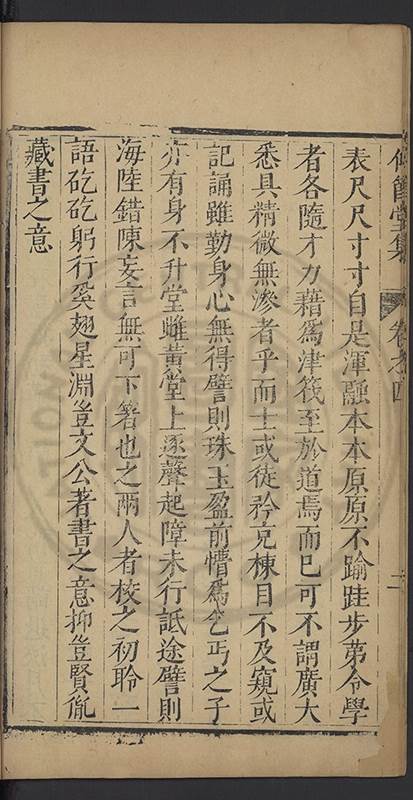 仰節堂集 卷之四
表尺尺寸寸自是渾融本本原原不踰跬步苐令學
者各隨才力藉爲津筏至於道焉而已可不謂廣大
悉具精微無滲者乎而士或徒矜充棟目不及窺或
記誦雖勤身心無得譬則珠玉盈前懵爲乞丐之子
亦有身不升堂雌黃堂上逐聲起障未行詆途譬則
海陸錯陳妄言無可下箸也之兩人者校之初聆一
語矻矻躬行奚翅星淵豈文公著書之意抑豈賢胤
藏書之意